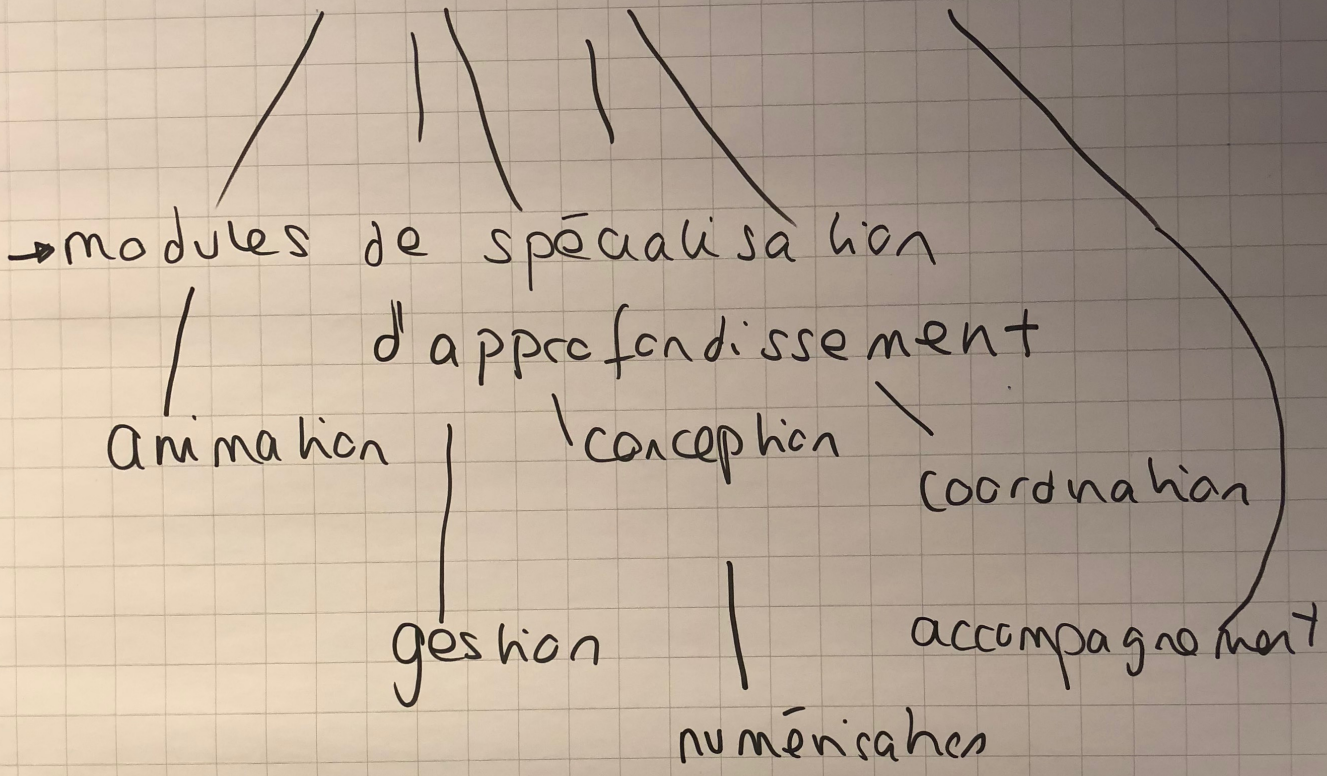 →modules de spécialisation
d'approfondissement
animation
conception
coordnation
gestion
accompagnement
numérisation